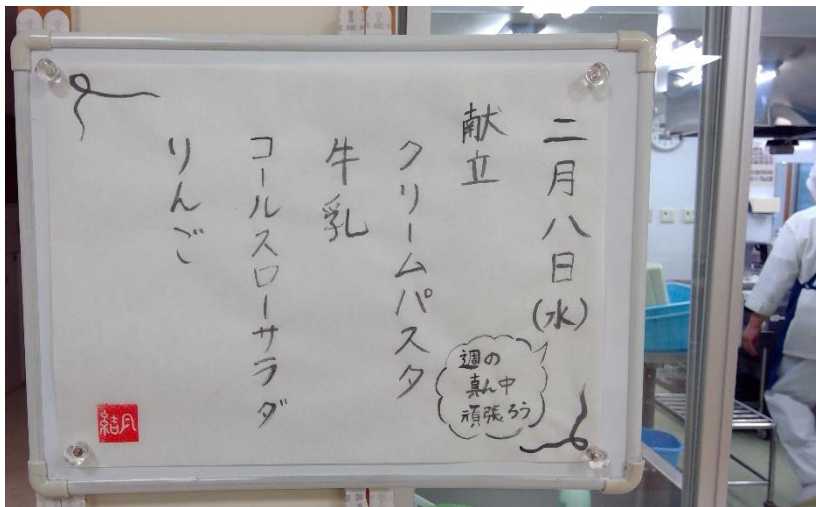 二月八日(水)
週の
真ん中
頑張ろう
献立
クリームパスタ
牛乳
コールスローサラダ
りんご